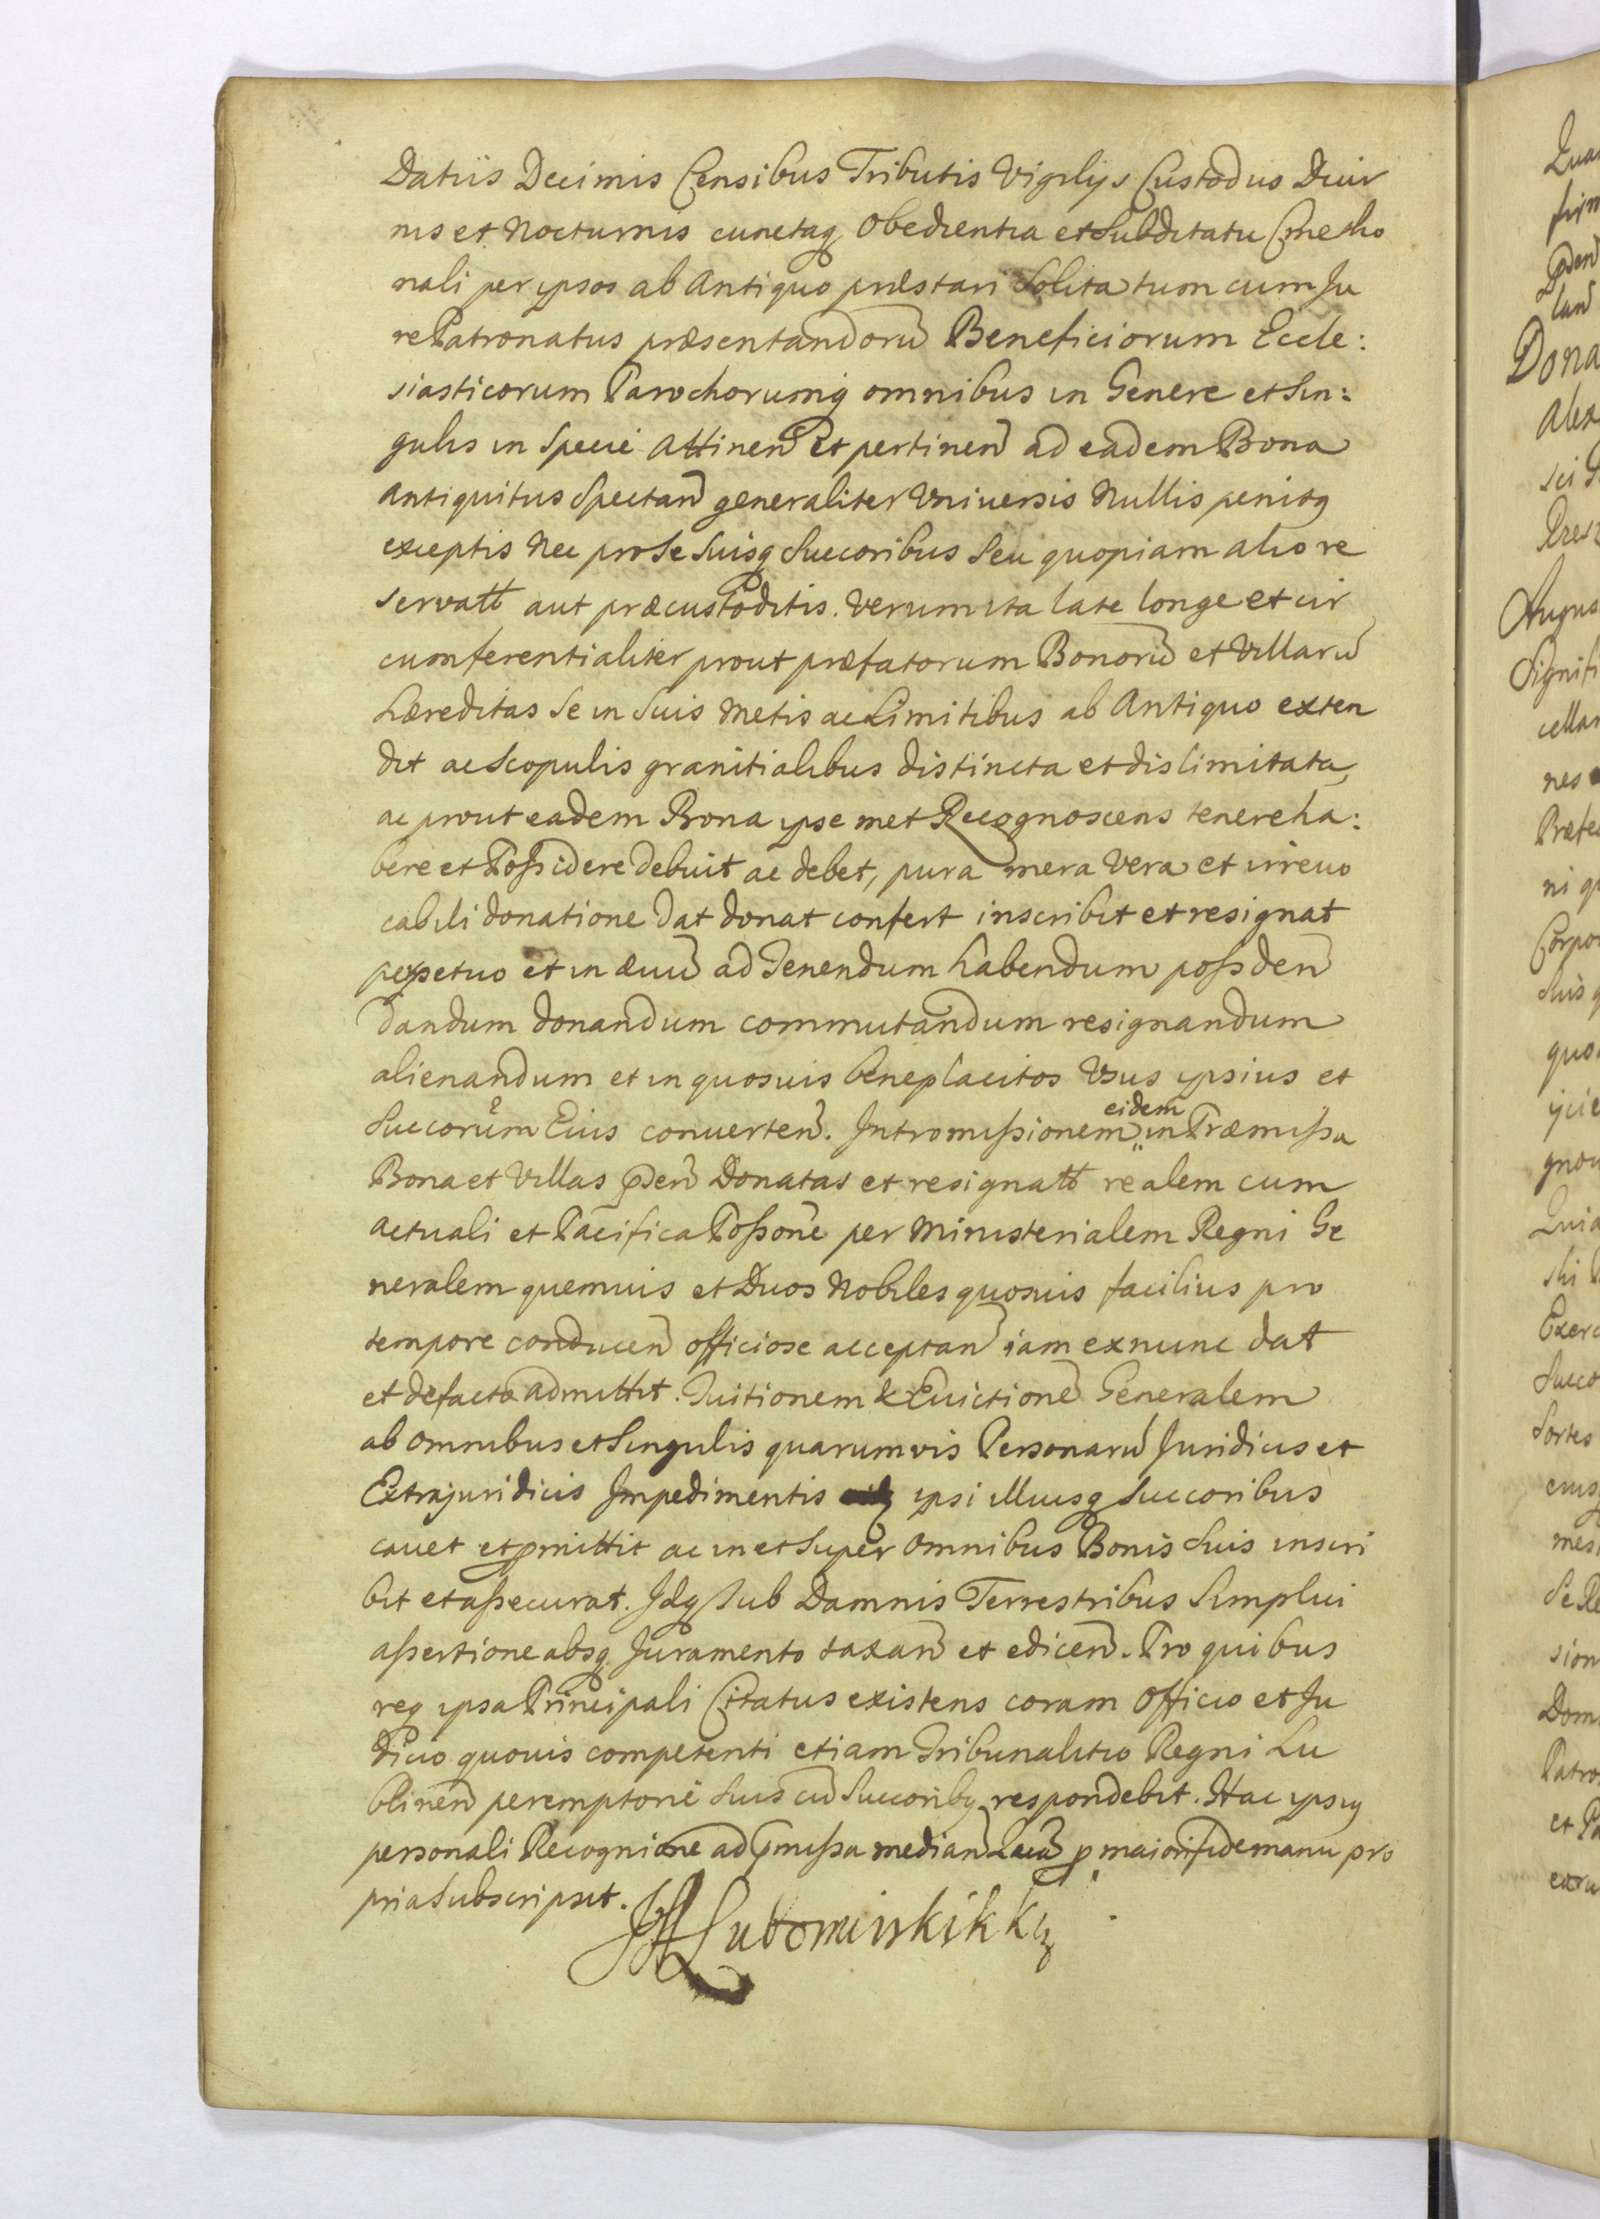 Datÿs Decimis Censibus Tributis Vigilijs Custodiis Diur
nis et Nocturnis cunctaq Obedientia et Subditatu Cmetho
nali per ipsos ab Antiquo præstari Solita tum cum Ju
re Patronatus præsentandorũ Beneficiorum Eccle:
siasticorum Parochorumq omnibus in Genere et Sin:
gulis in Specie Attineñ et pertineñ ad eadem Bona
Antiquitus Spectañ generaliter Vniuersis Nullis penitq
exceptis Nec pro Se Suisq Succoribus Seu quopiam alio re
servatt aut præcustoditis. Verum ita late longe et cir
cumferentialiter prout præfatorum Bonorũ et Villarũ
hæreditas Se in Suis Metis ac Limitibus ab Antiquo exten
dit ac Scopulis granitialibus distincta et dislimitata
ac prout eadem Bona ipse met Recognoscens tenere ha:
bere et Possidere debuit ac debet, pura mera vera et irreuo
cabili donatione dat donat confert inscribit et resignat
perpetuo et in æuũ ad Tenendum habendum possdeñ
dandum donandum commutandum resignandum
alienandum et in quosuis beneplacitos Vsus ipsius et
Succorum Eius conuerteñ. Intromissionem eidem in Præmissa
Bona et Villas pdeñ Donatas et resignatt realem cum
actuali et Pacifica Possone per Ministerialem Regni Ge
neralem quemuis et Duos Nobiles quosuis facilius pro
tempore conduceñ officiose acceptañ iam exnunc dat
et defacto admittit. Tuitionem & Euictionẽ Generalem
ab omnibus et Singulis quarumvis Personarũ Juridicis et
Extrajuridicis Impedimentis ipsi illiusq Succoribus
cauet et pmittit ac in et Super Omnibus Bonis Suis inscri
bit et assecurat. Idq Sub Damnis Terrestribus Simplici
assertione absq Juramento taxañ et ediceñ. Pro quibus
req ipsa Principali Citatus existens coram Officio et Ju
dicio quouis competenti etiam Tribunalitio Regni Lu
blineñ peremptorie Suis cũ Succoribq respondebit. Hac ipsiq
personali Recognione ad pmissa mediañ p maiori fide manu pro
pria Subscripsit.
Lubomirski